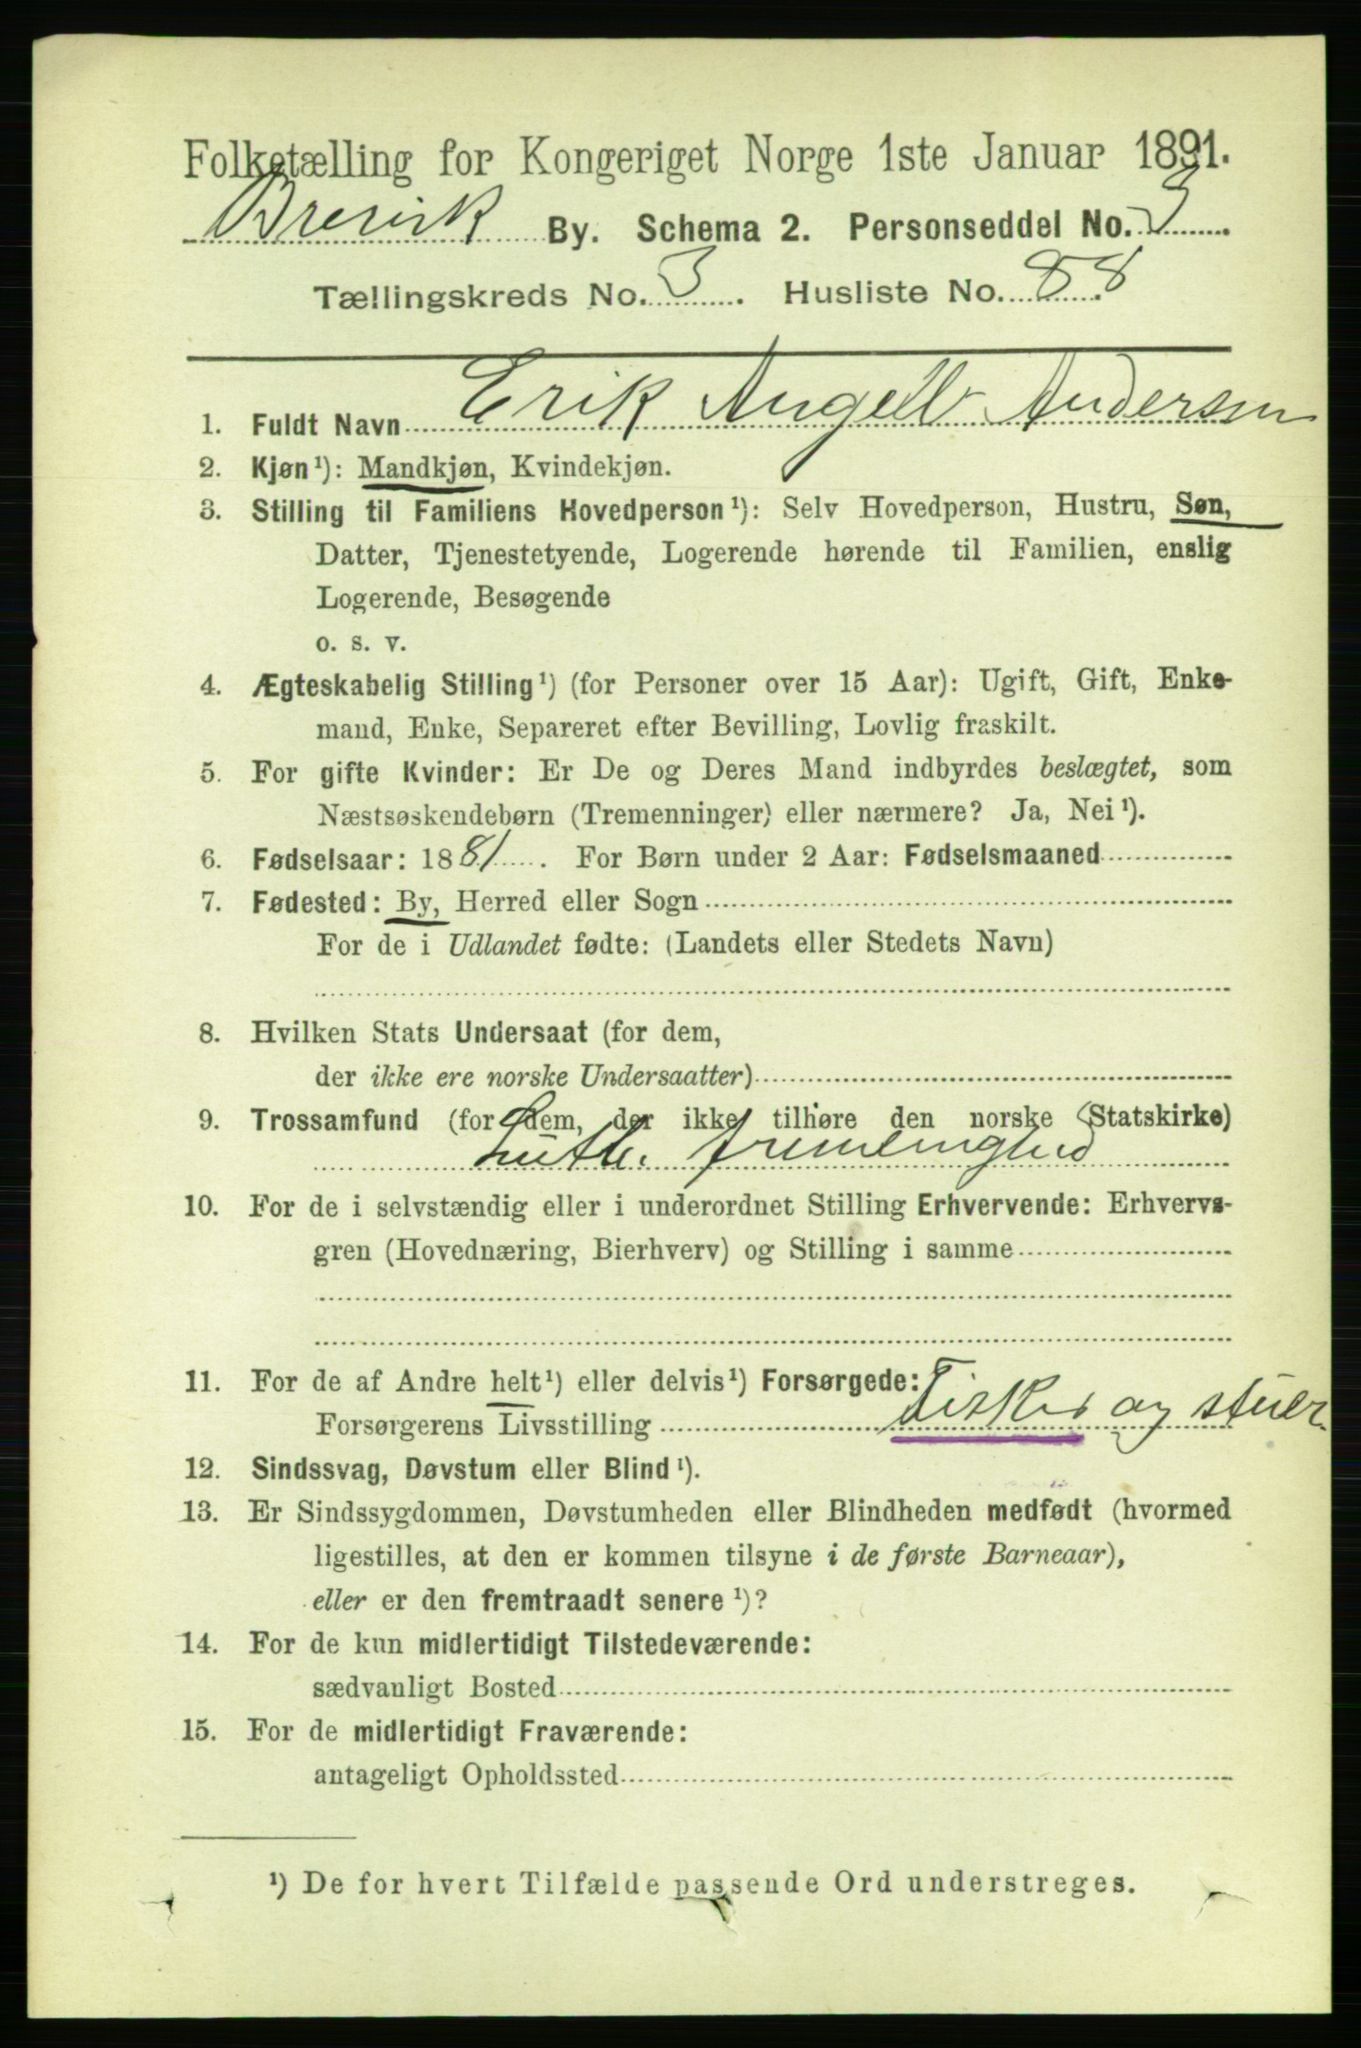 Folketælling for Kongeriget Norge 1ste Januar 1891.
Brevik By. Schema 2. Personseddel No. 3
Tællingskreds No. 3. Husliste No. 88
1. Fuldt Navn Erik Angell Andersen
2. Kjøn¹): Mandkjøn, Kvindekjøn.
3. Stilling til Familiens Hovedperson¹): Selv Hovedperson, Hustru, Søn,
Datter, Tjenestetyende, Logerende hørende til Familien, enslig
Logerende, Besøgende
o. s. v.
4. Ægteskabelig Stilling¹) (for Personer over 15 Aar): Ugift, Gift, Enke-
mand, Enke, Separeret efter Bevilling, Lovlig fraskilt.
5. For gifte Kvinder: Er De og Deres Mand indbyrdes beslægtet, som
Næstsøskendebørn (Tremenninger) eller nærmere? Ja, Nei¹).
6. Fødselsaar: 1881. For Børn under 2 Aar: Fødselsmaaned
7. Fødested: By, Herred eller Sogn
For de i Udlandet fødte: (Landets eller Stedets Navn)
8. Hvilken Stats Undersaat (for dem,
der ikke ere norske Undersaatter)
9. Trossamfund (for dem, der ikke tilhøre den norske Statskirke)
Luth.
10. For de i selvstændig eller i underordnet Stilling Erhvervende: Erhvervs-
gren (Hovednæring, Bierhverv) og Stilling i samme
11. For de af Andre helt¹) eller delvis¹) Forsørgede:
Forsørgerens Livsstilling Fisker og stuer
12. Sindssvag, Døvstum eller Blind¹).
13. Er Sindssygdommen, Døvstumheden eller Blindheden medfødt (hvormed
ligestilles, at den er kommen tilsyne i de første Barneaar),
eller er den fremtraadt senere¹)?
14. For de kun midlertidigt Tilstedeværende:
sædvanligt Bosted
15. For de midlertidigt Fraværende:
antageligt Opholdssted
¹) De for hvert Tilfælde passende Ord understreges.